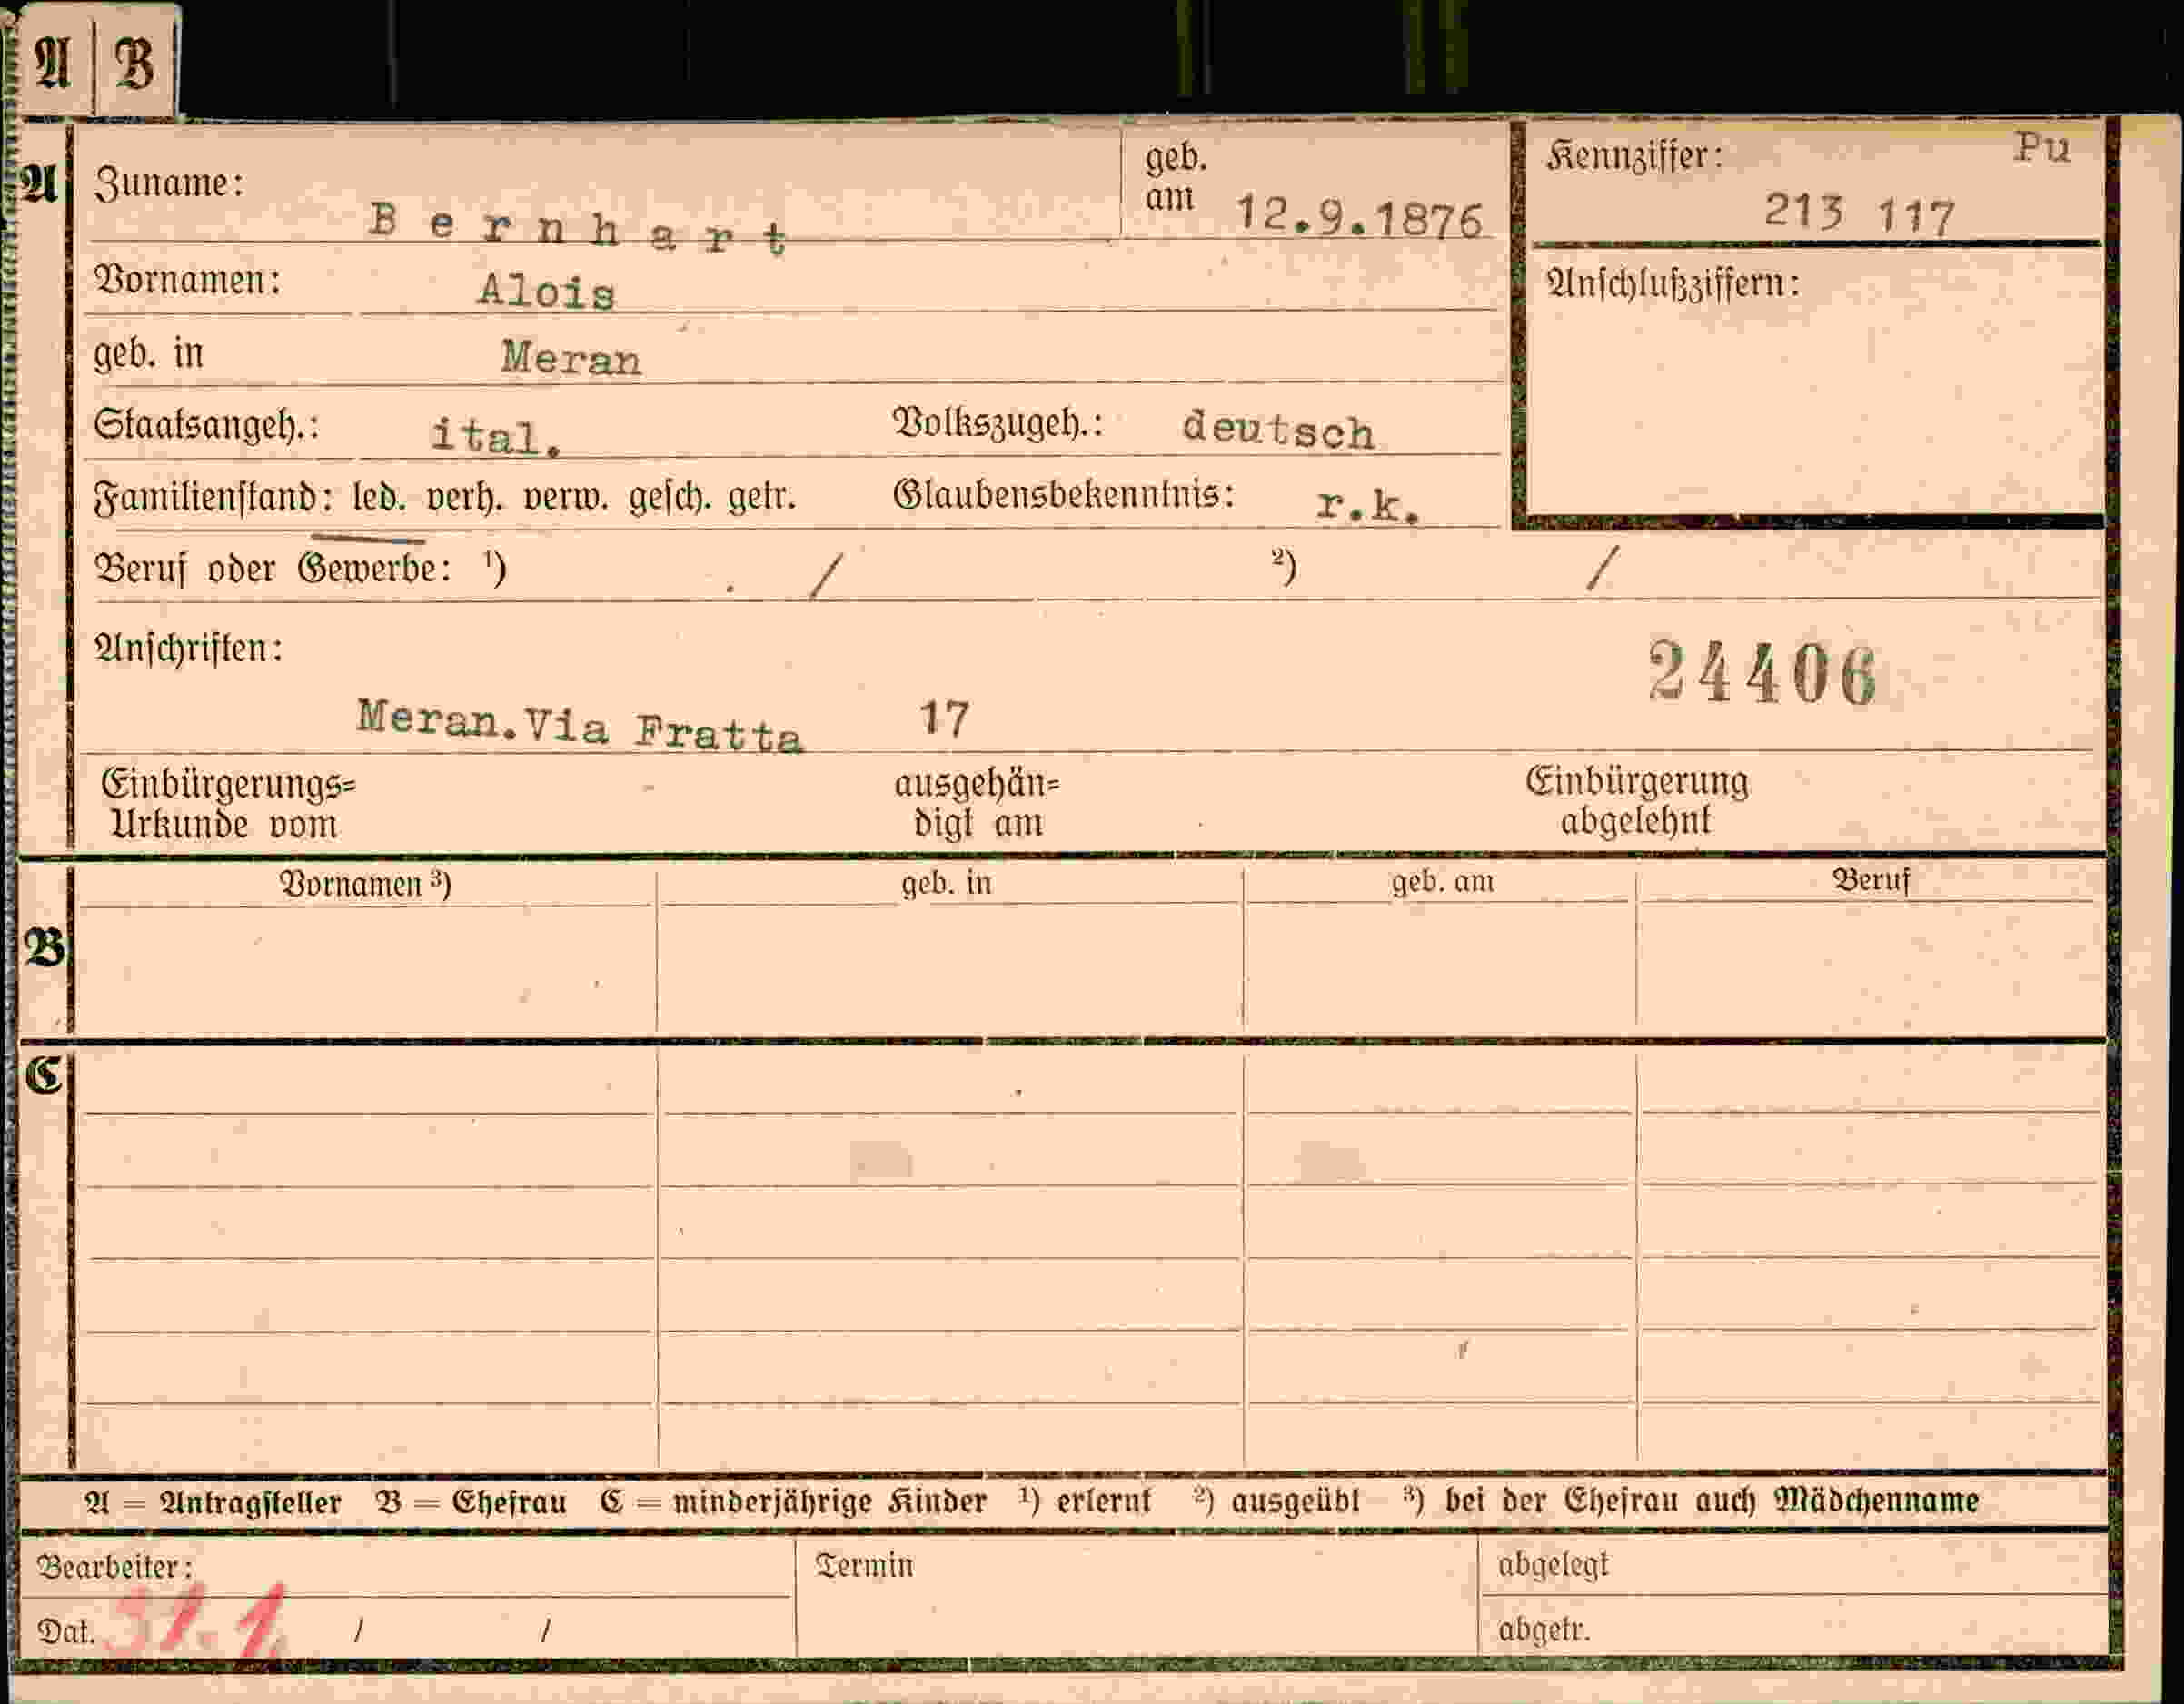 A B
A Zuname: geb. am Kennziffer: Pu
B e r n h a r t 12.9.1876 213 117
Vornamen: Alois Anschlußziffern:
geb. in Meran
Staatsangeh.: ital. Volkszugeh.: deutsch
Familienstand: led. verh. verw. gesch. getr. Glaubensbekenntnis: r.k.
Beruf oder Gewerbe: ¹) / ²) /
Anschriften: 24406
Meran.Via Fratta 17
Einbürgerungs= ausgehän= Einbürgerung
Urkunde vom digt am abgelehnt
Vornamen ³) geb. in geb. am Beruf
B
C
A = Antragsteller B = Ehefrau C = minderjährige Kinder ¹) erlernt ²) ausgeübt ³) bei der Ehefrau auch Mädchenname
Bearbeiter: Termin abgelegt
Dat. 31.1. / / abgetr.